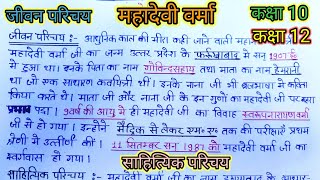 जीवन परिचय
महादेवी वर्मा
कक्षा 10
कक्षा 12
जीवन परिचय :- आधुनिक काल की मीरा कही जाने वाली महादेवी
महादेवी वर्मा का जन्म उत्तर प्रदेश के फर्रुखाबाद में सन् 1907 ई०
में हुआ था। इनके पिता का नाम गोविन्दसहाय तथा माता का नाम हेमरानी
था जो एक साधारण कवयित्री थीं। इनके नाना जी भी ब्रजभाषा में कविता
किया करते थे। माता जी और नाना जी के इन गुणों का महादेवी जी पर
प्रभाव पड़ा। 9 वर्ष की आयु में ही महादेवी वर्मा का विवाह स्वरूपनारायण वर्मा
जी से हो गया। इन्होंने मैट्रिक से लेकर एम० ए० तक की परीक्षाएँ प्रथम
श्रेणी में उत्तीर्ण कीं। 11 सितम्बर सन् 1987 को महादेवी वर्मा का
स्वर्गवास हो गया।
साहित्यिक परिचय
साहित्यिक परिचय :- महादेवी वर्मा